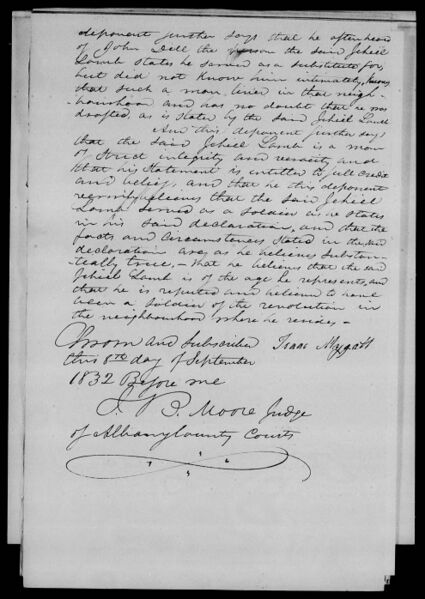 deponent further says that he often heard
of John Dell the person the said Jehiel
Lamb states he served as a substitute for,
but did not know him intimately, knows
that such a man lived in that neigh-
bourhood and has no doubt that he was
drafted, as is stated by the said Jehiel Lamb
And this deponent further says
that the said Jehiel Lamb is a man
of strict integrity and veracity and
that his statement is entitled to full credit
and belief, and that he this deponent
believes that the said Jehiel
Lamb served as a soldier as he states
in his said declaration, and that the
facts and circumstances stated in the said
declaration are, as he believes substan-
tially true, - that he believes that the said
Jehiel Lamb is of the age he represents, and
that he is reputed and believed to have
been a soldier of the revolution in
the neighbourhood where he resides -
Sworn and Subscribed Isaac Mygatt
this 8th day of September
1832 Before me
J. B. Moore Judge
of Albany County Courts